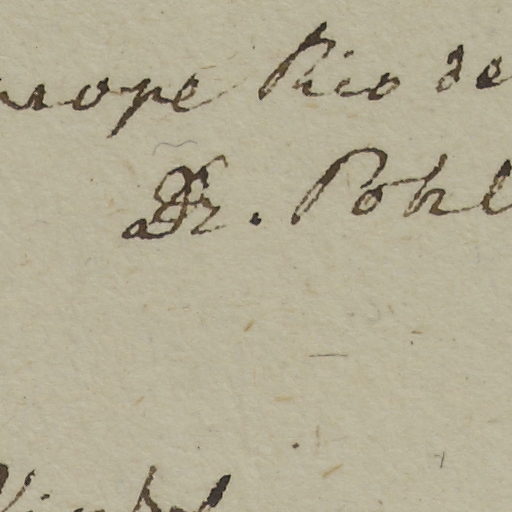 prope Rio de
Dr. Pohl